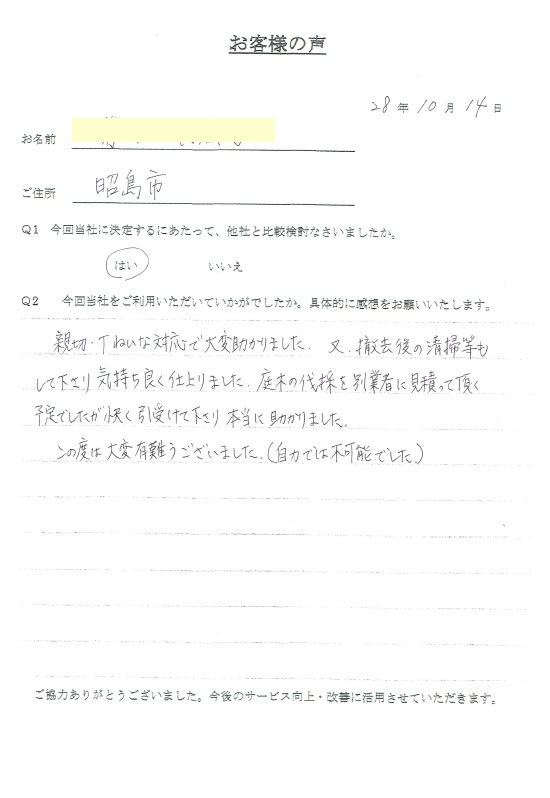 お客様の声
28年10月14日
お名前
ご住所 昭島市
Q1 今回当社に決定するにあたって、他社と比較検討なさいましたか。
はい いいえ
Q2 今回当社をご利用いただいていかがでしたか。具体的に感想をお願いいたします。
親切・丁ねいな対応で大変助かりました。又、撤去後の清掃等も
して下さり気持ち良く仕上りました。庭木の伐採を別業者に見積って頂く
予定でしたが快く引受けて下さり本当に助かりました。
この度は大変有難うございました。(自力では不可能でした)
ご協力ありがとうございました。今後のサービス向上・改善に活用させていただきます。